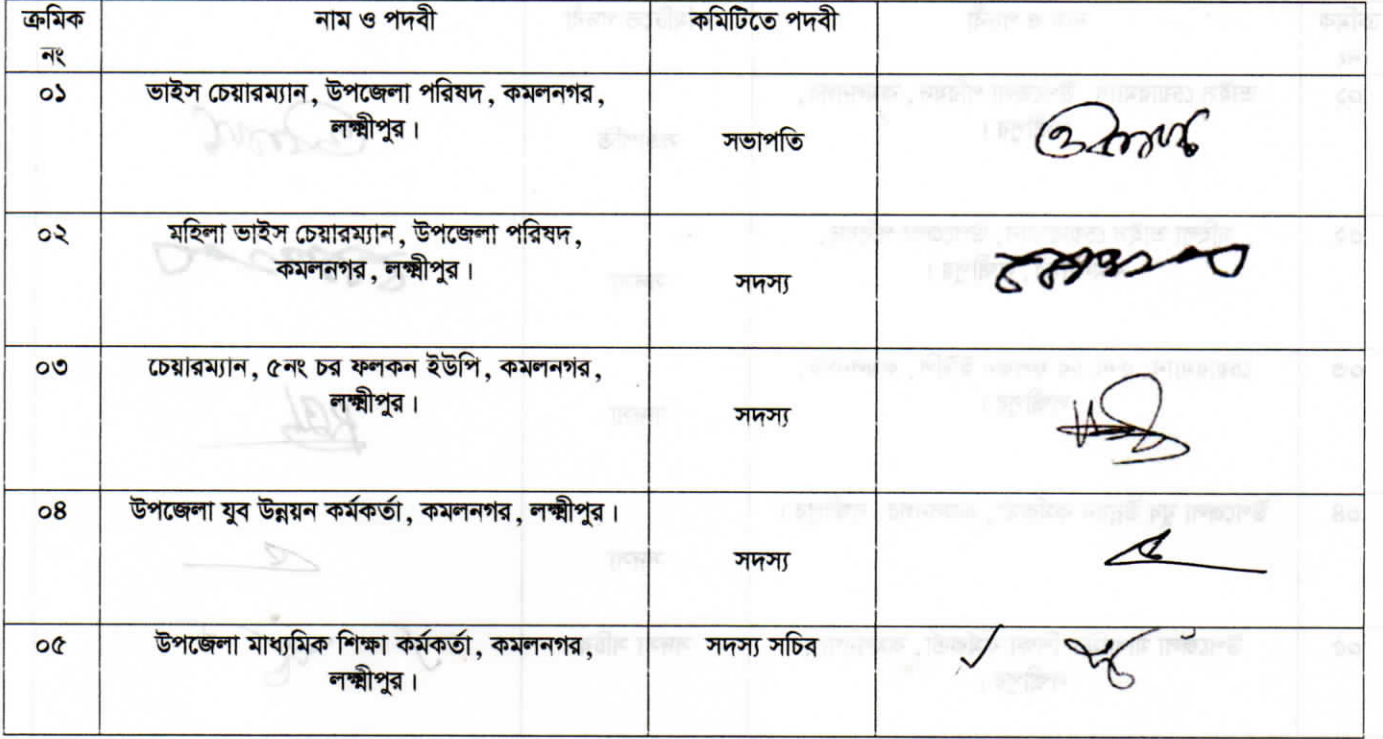 ক্রমিক নং নাম ও পদবী কমিটিতে পদবী
০১ ভাইস চেয়ারম্যান, উপজেলা পরিষদ, কমলনগর,
লক্ষ্মীপুর। সভাপতি
০২ মহিলা ভাইস চেয়ারম্যান, উপজেলা পরিষদ,
কমলনগর, লক্ষ্মীপুর। সদস্য
০৩ চেয়ারম্যান, ৫নং চর ফলকন ইউপি, কমলনগর,
লক্ষ্মীপুর। সদস্য
০৪ উপজেলা যুব উন্নয়ন কর্মকর্তা, কমলনগর, লক্ষ্মীপুর।
সদস্য
০৫ উপজেলা মাধ্যমিক শিক্ষা কর্মকর্তা, কমলনগর, সদস্য সচিব
লক্ষ্মীপুর।